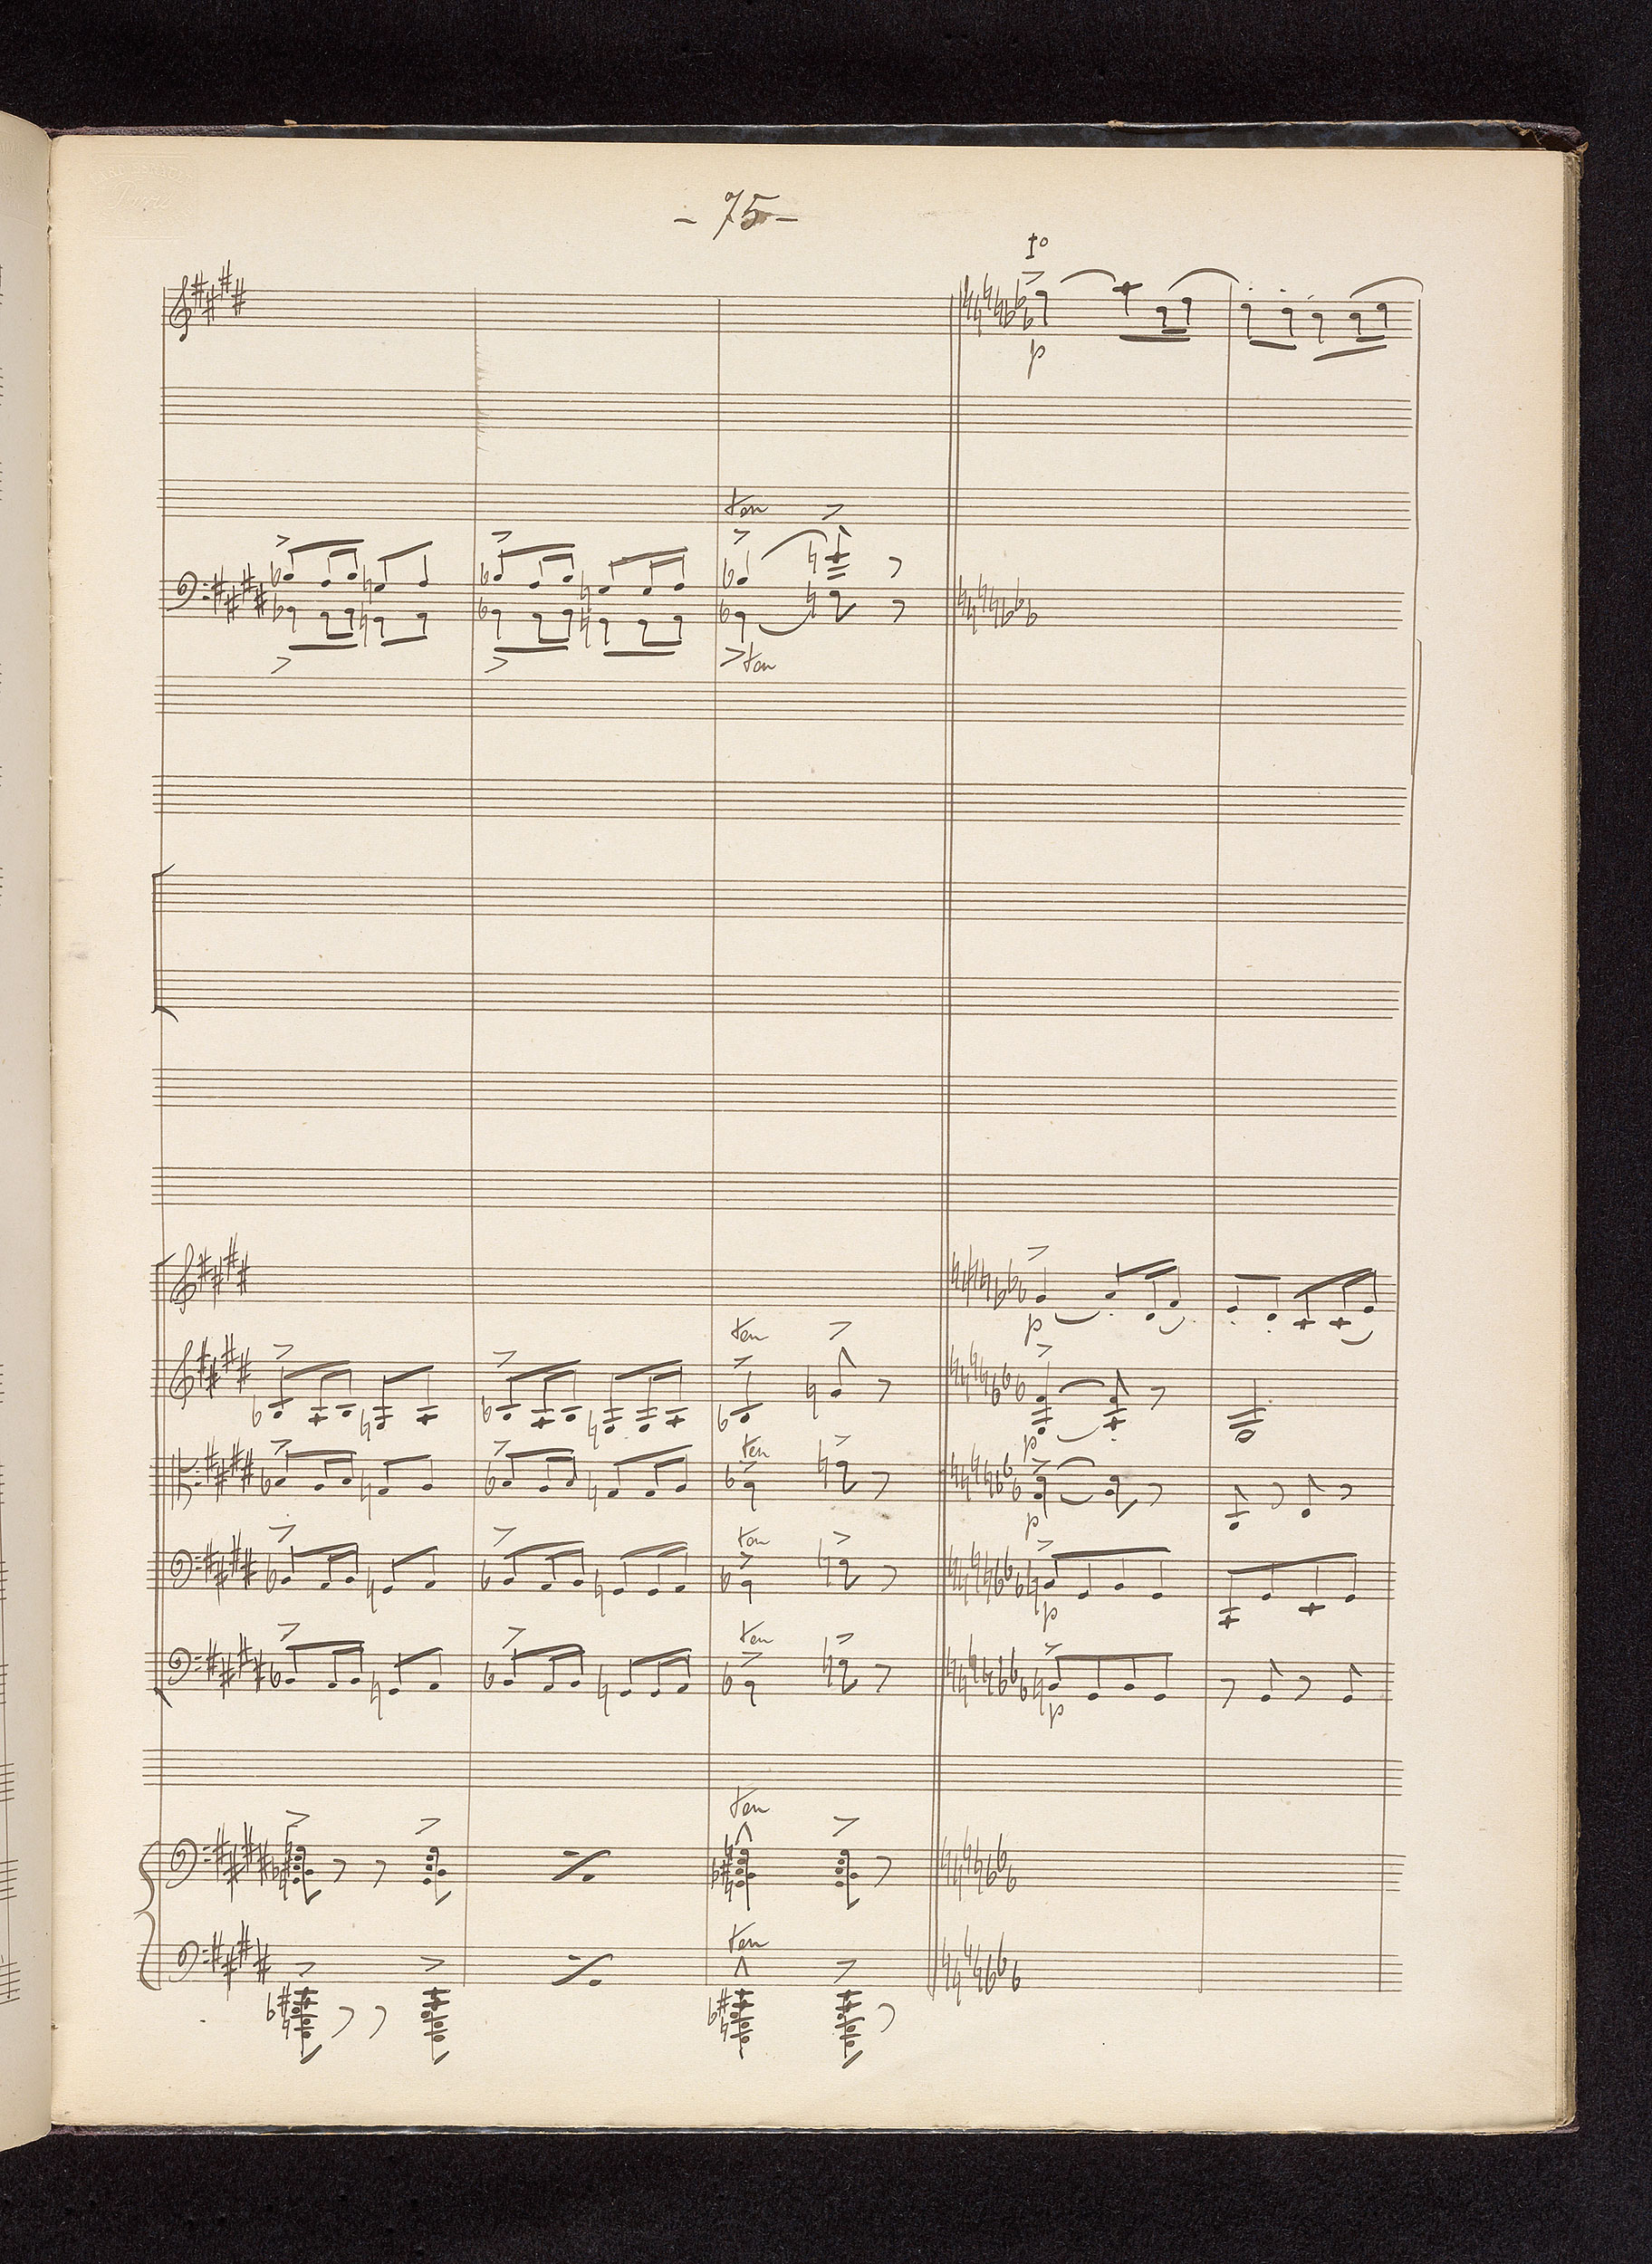 - 75 -
1o
p
ten
>ten
p
ten
p
ten
p
ten
p
ten
p
ten
ten